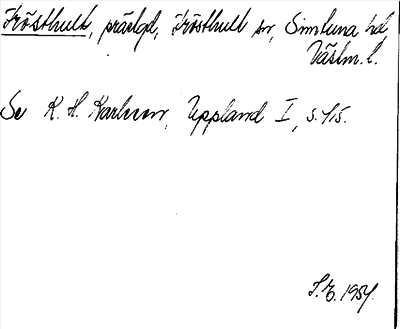 Frösthult, prästgd, Frösthult sn, Simtuna hd,
Västm. l.
Se K. H. Karlsson, Uppland I, s. 415.
S. E. 1954.